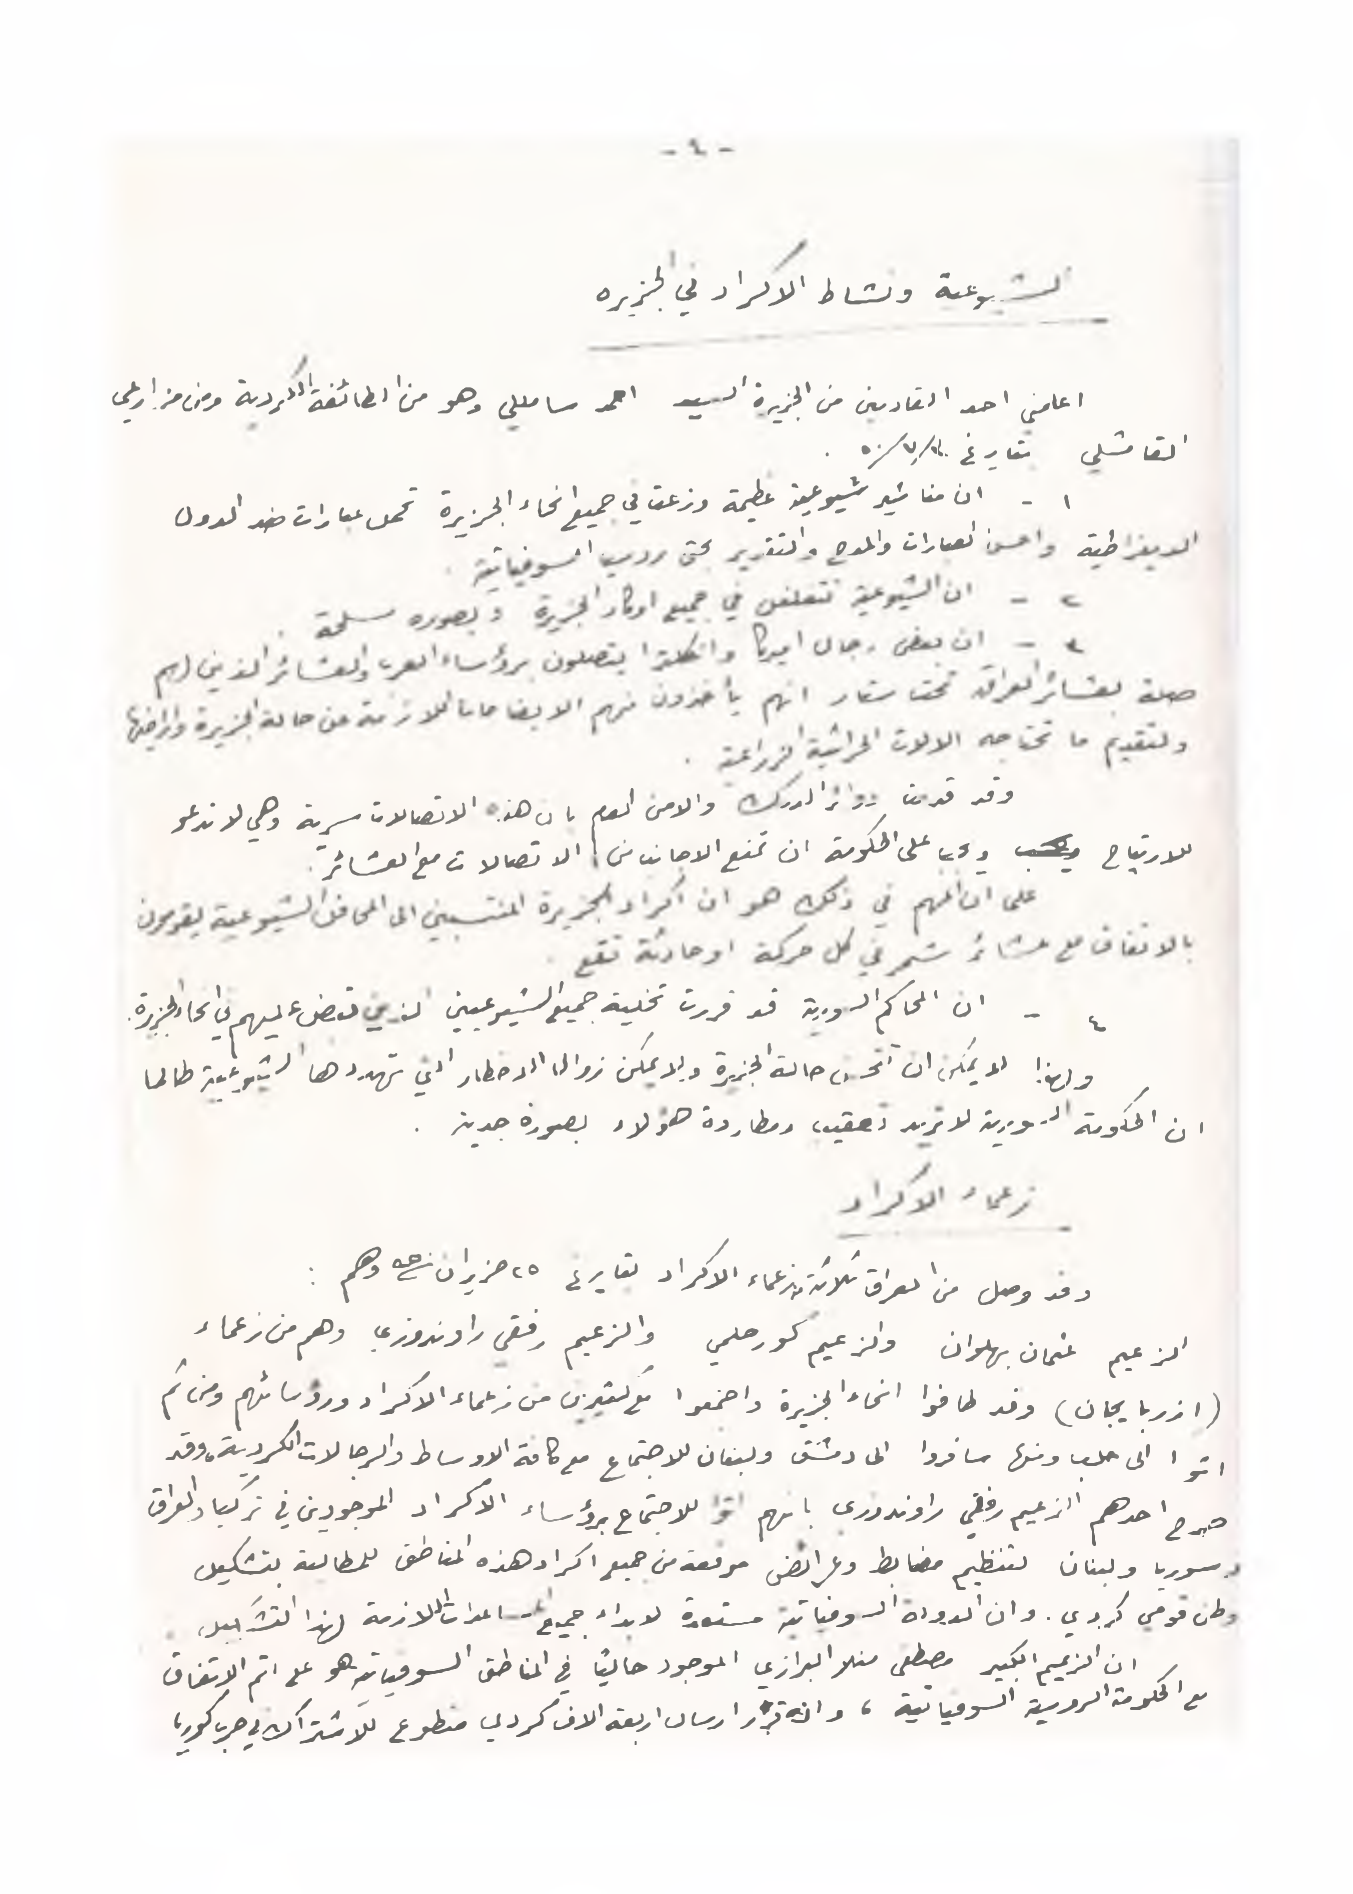 - ٤ -
الشيوعية ونشاط الاكراد في الجزيره
اعلمني احد القادمين من الجزيرة السيد احمد سامللي وهو من الطائفة الكردية ومن مزارعي
القامشلي بتاريخ
١ - ان مناشير شيوعية عظيمة وزعت في جميع انحاء الجزيرة تحمل عبارات ضد الدول
الديمقراطية واحسن العبارات والمدح والتقدير بحق روسيا السوفياتية .
٢ - ان الشيوعية تتغلغل في جميع اوكار الجزيرة وبصوره مسلحة .
٣ - ان بعض رجال اميركا وانكلترا يتصلون برؤساء العرب والعشائر الذين لهم
صلة بعشائر العراق تحت ستار انهم يأخذون منهم الايضاحات اللازمة عن حالة الجزيرة واراضيها
ولتقديم ما تحتاجه الالات الحراثية الزراعية .
وقد قدمت دوائر الدرك والامن العام بان هذه الاتصالات سرية وهي لا تدعو
للارتياح ويجب على الحكومة ان تمنع الاجانب من الاتصالات مع العشائر .
على ان المهم في ذلك هو ان اكراد الجزيرة المنتسبين الى المحافل الشيوعية يقومون
بالاتفاق مع عشائر شمر في كل حركة او حادثة تقع .
٤ - ان المحاكم السورية قد قررت تخلية جميع الشيوعيين الذين تقبض عليهم في انحاء الجزيرة .
ولهذا لا يمكن ان تتحسن حالة الجزيرة ولا يمكن زوال الاخطار التي تهددها الشيوعية طالما
ان الحكومة السورية لا تريد تعقيب ومطاردة هؤلاء بصورة جدية .
زعماء الاكراد
وقد وصل من العراق ثلاثة من زعماء الاكراد بتاريخ ٢٥ حزيران وهم :
الزعيم عثمان بهلوان والزعيم كور حلمي والزعيم رفقي راوندوزي وهم من زعماء
(اذربايجان) وقد طافوا انحاء الجزيرة واجتمعوا مع كثيرين من زعماء الاكراد ورؤسائهم ومن ثم
اتوا الى حلب ومنها سافروا الى دمشق ولبنان للاجتماع مع كافة الاوساط والرجالات الكردية، وقد
صرح احدهم الزعيم رفقي راوندوزي بانهم اتوا للاجتماع برؤساء الاكراد الموجودين في تركيا والعراق
وسوريا ولبنان لتنظيم مضابط وعرائض موقعة من جميع اكراد هذه المناطق للمطالبة بتشكيل
وطن قومي كردي . وان الدولة السوفياتية مستعدة لابداء جميع المساعدات اللازمة لهذا التشكيل .
ان الزعيم الكبير مصطفى منلا البرازي الموجود حاليا في المناطق السوفياتية هو على اتم الاتفاق
مع الحكومة الروسية السوفياتية ، وانه قرر ارسال اربعة الاف كردي متطوع للاشتراك في حرب كوريا